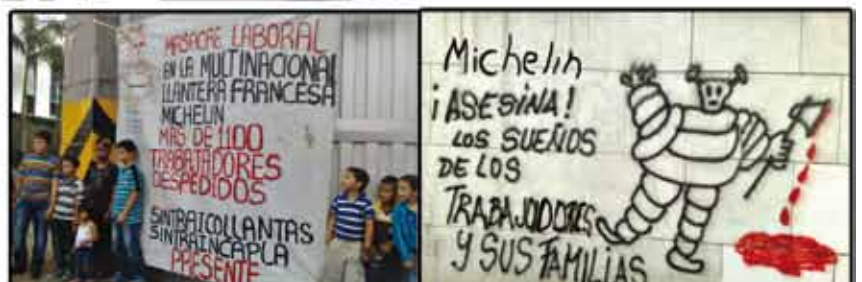 MASACRE LABORAL
EN LA MULTINACIONAL
LLANTERA FRANCESA
MICHELIN
MAS DE 1100
TRABAJADORES
DESPEDIDOS
SINTRAICOLLANTAS
SINTRAINCAPLA
PRESENTE
Michelin
¡ASESINA!
LOS SUEÑOS
DE LOS
TRABAJODORES
Y SUS FAMILIAS